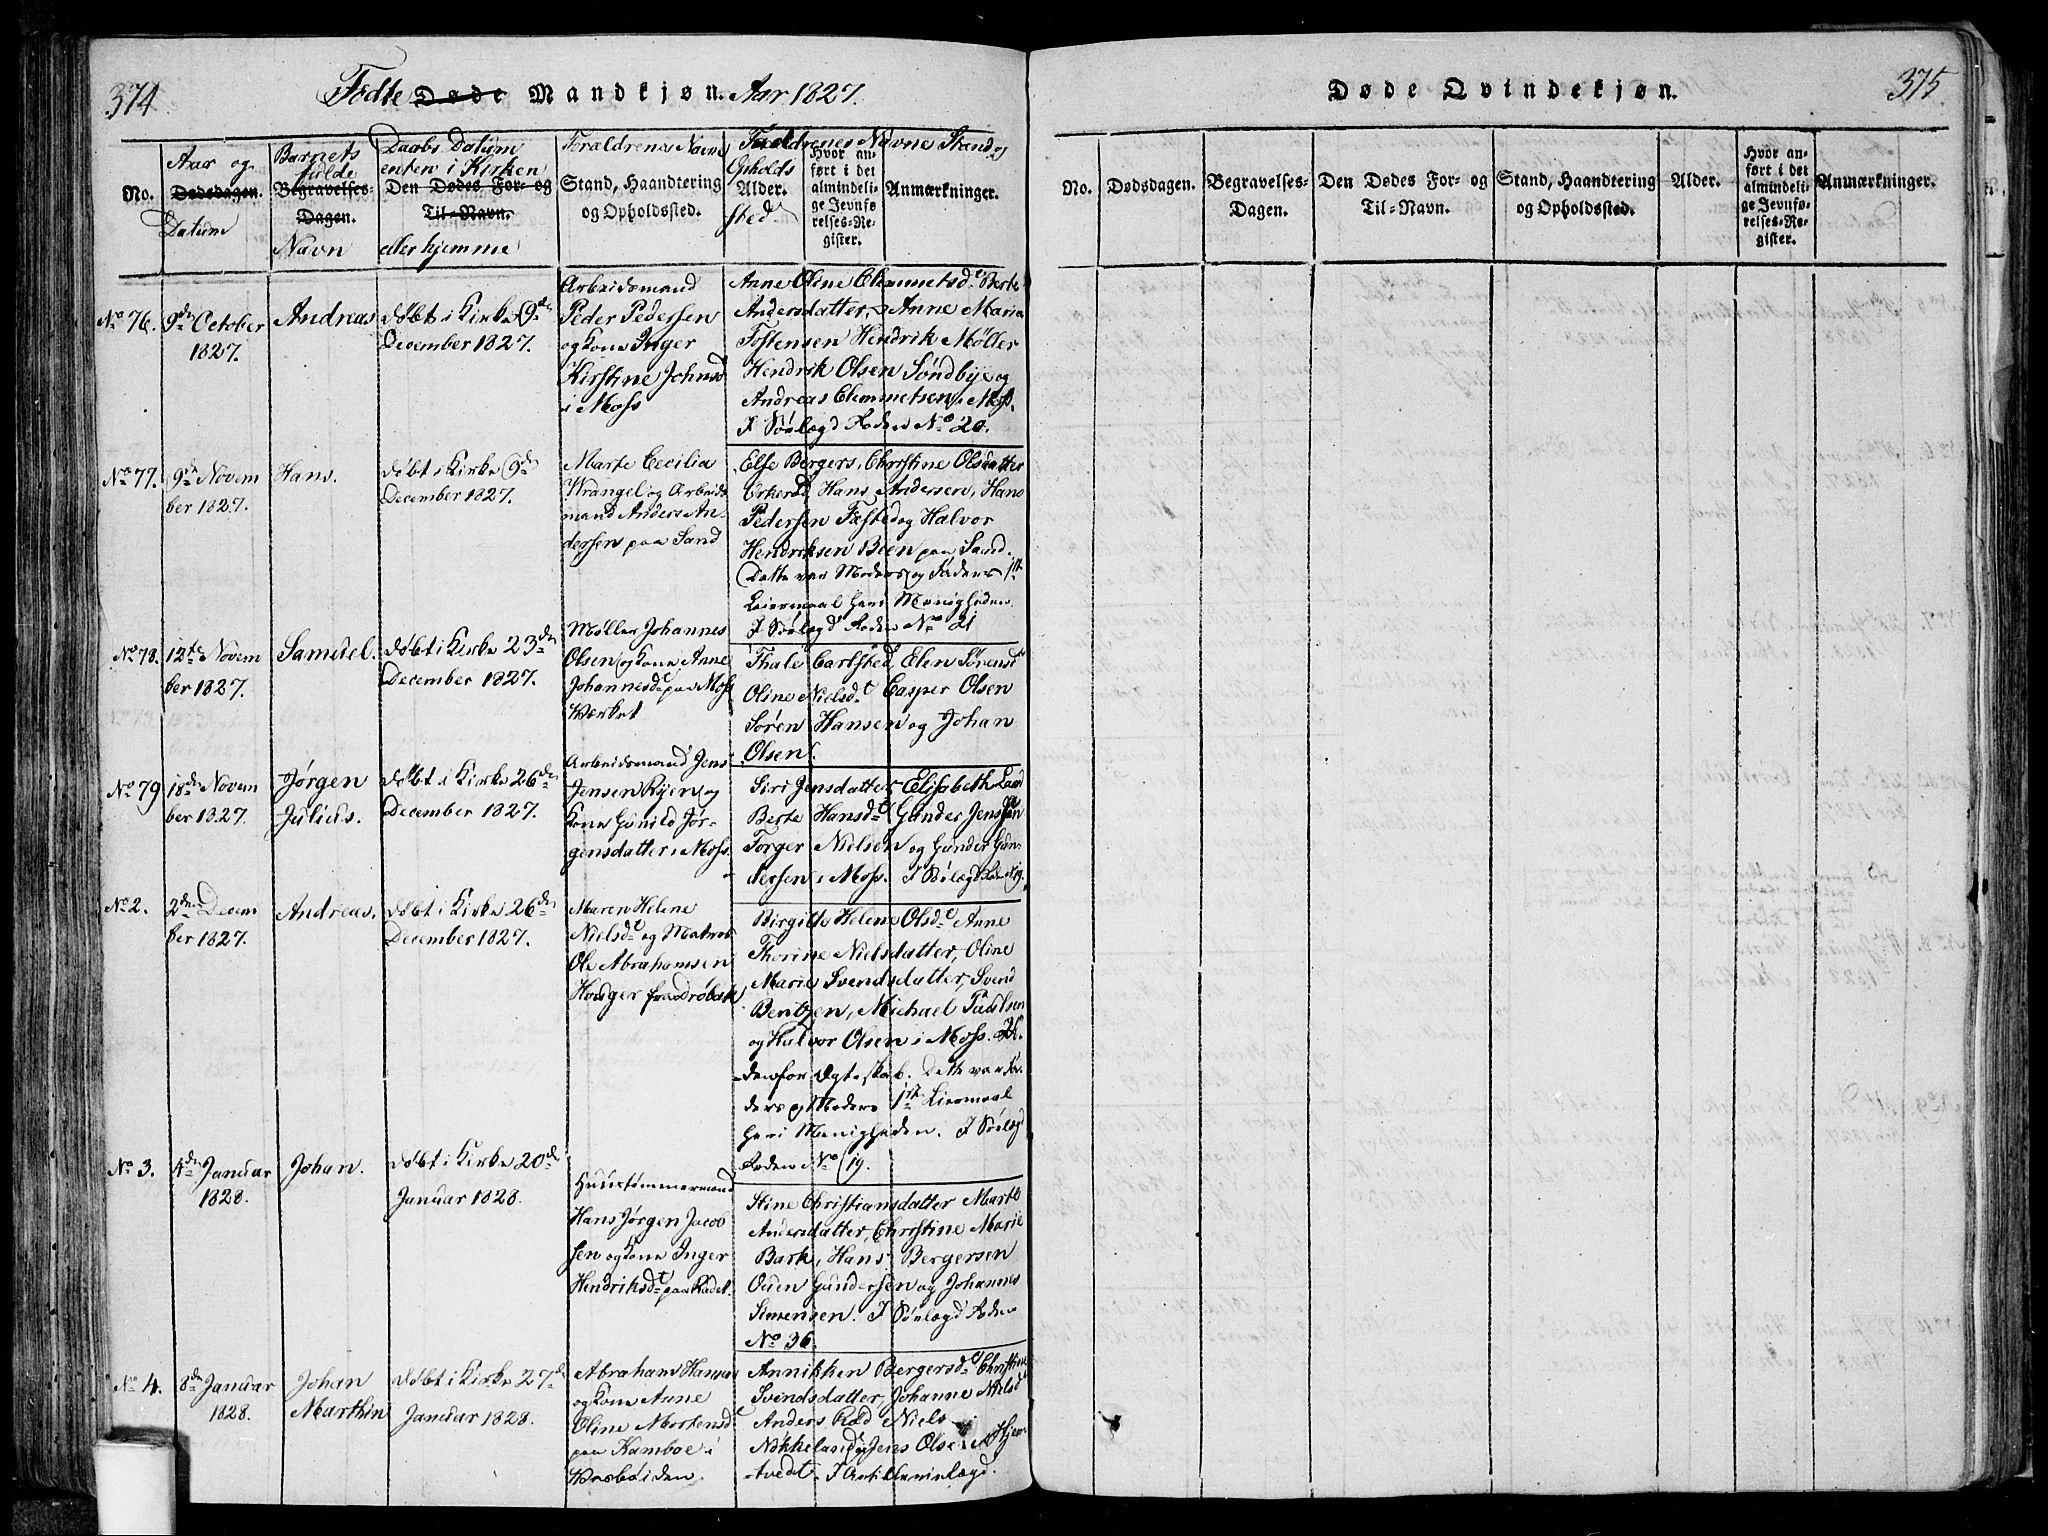 374
Fødte Døde Mandkjøn. Aar 1827.
No.
Aar og
Dødsdagen.
Datum
Barnets
fulde
Begravelses-
Dagen.
Navn
Daabs Datum
enten i Kirken
Den Dødes For- og
Til-Navn.
eller hjemme
Foraldrenes Navne
Stand, Haandtering
og Opholdssted.
Fadrenes Navne Stand og
Opholds
Alder.
sted
Hvor an-
ført i det
almindeli-
ge Jevnfø-
relses-Re-
gister.
Anmærkninger.
No 76.
9de October
1827.
Andreas
døbt i Kirke 9de
December 1827.
Arbeidsmand
Peder Pedersen
og Kone Inger
Kirstine Johnsd
i Moss
Anne Oline Clemmetsd. Berte
Andersdatter, Anne Maria
Tostensen Hendrik Møller
Hendrik Olsen Sundbye og
Andreas Clemmetsen, Moss.
I Søelægd Roden No 20.
No 77.
9de Novem
ber 1827.
Hans.
døbt i Kirke 9de
December 1827.
Marte Cecilia
Wrangel og Arbeids
mand Anders An-
dersen paa Sand
Else Bergers, Christine Olsdatter
Hans Andersen, Hans
Pedersen og Halvor
Hendriksen Been paa Sand.
Dette var Moders og Faders 1ste
Leiermaal her i Menigheden.
I Søelægd Roden No 21
No 78.
12te Novem
ber 1827.
Samuel.
døbt i Kirke 23de
December 1827.
Møller Johannes
Olsen og Kone Anne
Johannesd paa Moss
Værket
Thale Carlsted, Elen Sørensd
Oline Nielsd Casper Olsen
Søren Hansen og Johan
Olsen.
No 79
18de Novem
ber 1827.
Jørgen
Julius.
døbt i Kirke 26de
December 1827.
Arbeidsmand Jens
Jensen Ryen og
Kone Gunild Jør-
gensdatter i Moss.
Siri Jensdatter, Elisabeth Lund
Berte Hansd. Gunder Jenssen
Torger Nielsen og Gunder Gun-
dersen i Moss. I Søelægd Roden 19.
No 2.
2den Decem
ber 1827.
Andreas.
døbt i Kirke 26de
December 1827.
Maren Helene
Nielsd og Matros
Ole Abrahamsen
Holger fra Drøbak
Birgitte Helene Olsd. Anne
Thorine Nielsdatter, Oline
Marie Svendsdatter, Svend
Bentzen, Michael Paulsen
og Halvor Olsen i Moss. U-
denfor Ægteskab. Dette var Fa-
ders og Moders 1ste Leiermaal
her i Menigheden. I Søelægd
Roden No 19.
No 3.
4de Januar
1828.
Johan.
døbt i Kirke 20de
Januar 1828.
Huustømmermand
Hans Jørgen Jacob
sen og Kone Inger
Hendriksd paa Rådet.
Stine Christiansdatter Marte
Andersdatter, Christine Marie
Bark, Hans Bergersen
Gundersen og Johannes
Simensen. I Søelægd Roden
No 36.
No 4.
8de Januar
1828.
Johan
Marthin
døbt i Kirke 27de
Januar 1828.
Abraham Hansen
og Kone Anne
Oline Mortensd
paa Kamboe i
Annikken Bergersd Christine
Svendsdatter, Johanne Nielsd
Anders Rød Niels
Nøkkeland Jens Olsen Hjem-
tvedt.
Døde Qvindekjøn.
375
No.
Dødsdagen.
Begravelses-
Dagen.
Den Dødes For- og
Til-Navn.
Stand, Haandtering
og Opholdssted.
Alder.
Hvor an-
ført i det
almindeli-
ge Jevnfø-
relses-Re-
gister.
Anmærkninger.